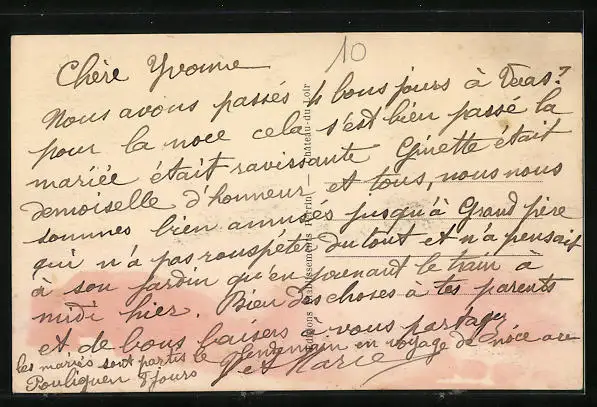 10
Chère Yvonne
Nous avons passés 4 bons jours à
pour la noce cela s'est bien passé la
mariée était ravissante Ginette était
demoiselle d'honneur et tous, nous nous
sommes bien amusés jusqu'à Grand père
qui n'a pas rouspéter du tout et n'a pensait
à son jardin qu'en prenant le train à
midi hier. Bien des choses à tes parents
et de bons baisers à vous partager
les mariés sont partis le lendemain en voyage de nôce au
Pouliguen 8 jours
et Marie
Château-du-Loir